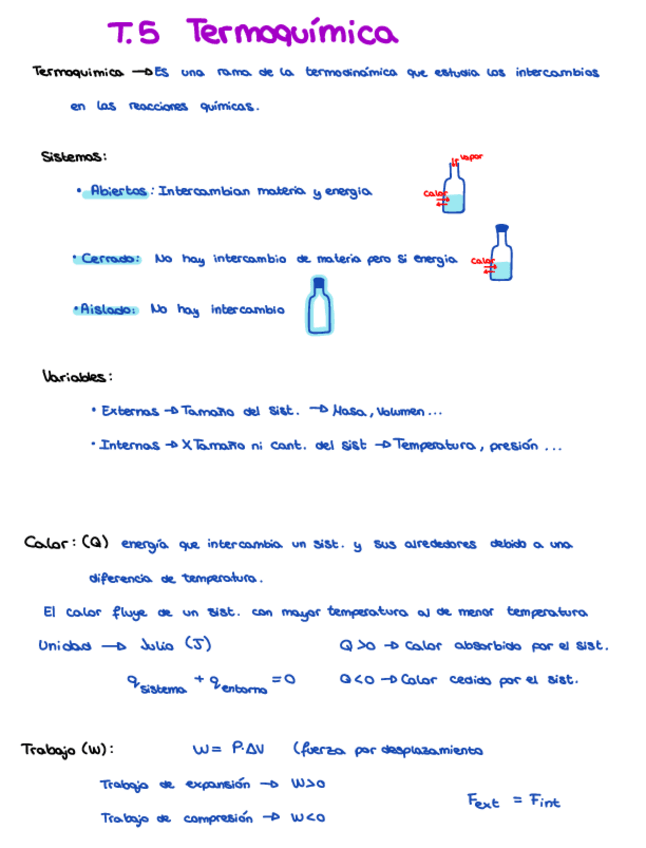 T.5 Termoquímica
Termoquimica → Es una rama de la termodinámica que estudia los intercambios
en las reacciones químicas.
Sistemas:
vapor
• Abiertos: Intercambian materia y energia
Calor
• Cerrado: No hay intercambio de materia pero si energia
Calor
• Aislado: No hay intercambio
Variables:
• Externas → Tamaño del sist. → Masa, Volumen...
• Internas → X Tamaño ni cant. del sist → Temperatura, presión ...
Calor: (Q) energía que intercambia un sist. y sus alrededores debido a una
diferencia de temperatura.
El calor fluye de un sist. con mayor temperatura al de menor temperatura
Unidad → Julio (J) Q>0 → Calor absorbido por el sist.
q sistema + q entorno = 0 Q<0 → Calor cedido por el sist.
Trabajo (W): W = P·ΔV (fuerza por desplazamiento
Trabajo de expansión → W>0
Fext = Fint
Trabajo de compresión → W<0